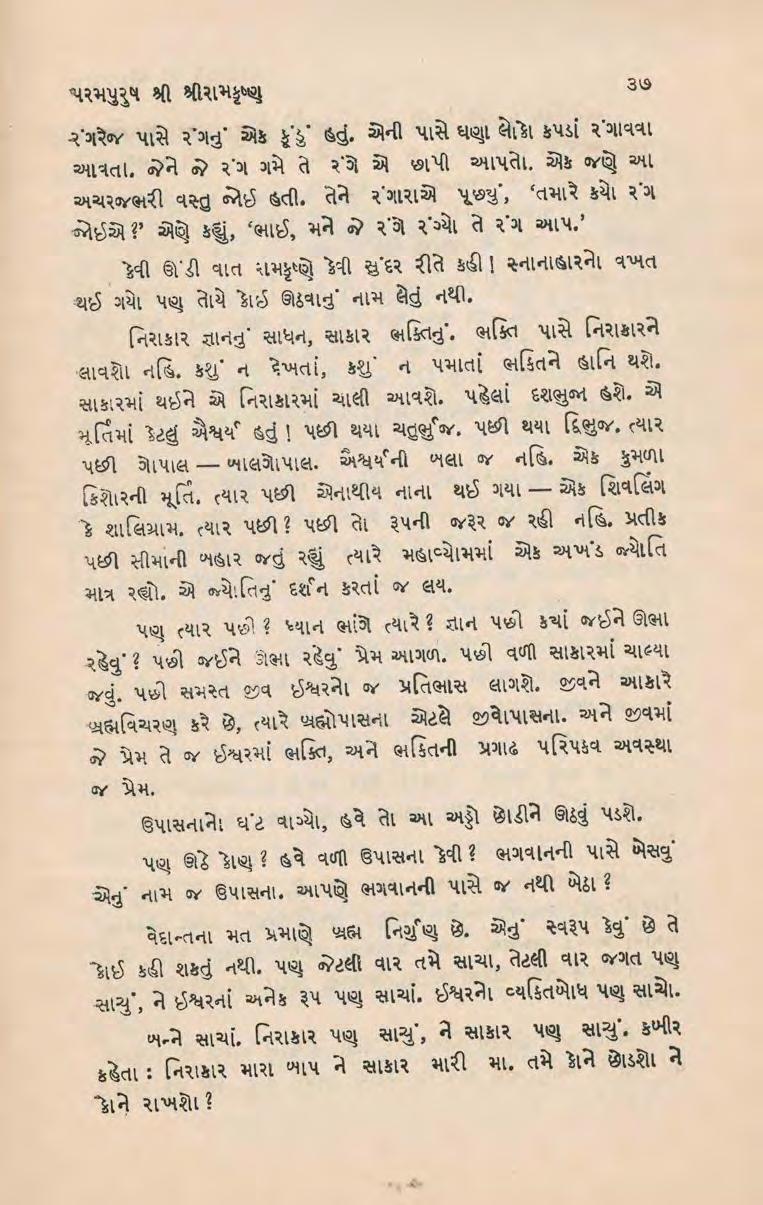 પરમપુરુષ શ્રી શ્રીરામકૃષ્ણ
૩૭
રંગરેજ પાસે રંગનું એક કૂંડું હતું. એની પાસે ઘણા લોકો કપડાં રંગાવવા
આવતા. જેને જે રંગ ગમે તે રંગે એ છાપી આપતો. એક જણે આ
અચરજભરી વસ્તુ જોઈ હતી. તેને રંગારાએ પૂછ્યું, ‘તમારે કયો રંગ
જોઈએ ?’ એણે કહ્યું, ‘ભાઈ, મને જે રંગે રંગ્યો તે રંગ આપ.’
કેવી ઊંડી વાત રામકૃષ્ણે કેવી સુંદર રીતે કહી ! સ્નાનાહારનો વખત
થઈ ગયો પણ તોયે કોઈ ઊઠવાનું નામ લેતું નથી.
નિરાકાર જ્ઞાનનું સાધન, સાકાર ભક્તિનું. ભક્તિ પાસે નિરાકારને
લાવશો નહિ. કશું ન દેખતાં, કશું ન પમાતાં ભક્તિને હાનિ થશે.
સાકારમાં થઈને એ નિરાકારમાં ચાલી આવશે. પહેલાં દશભુજા હશે. એ
મૂર્તિમાં કેટલું ઐશ્વર્ય હતું ! પછી થયા ચતુર્ભુજ. પછી થયા દ્વિભુજ. ત્યાર
પછી ગોપાલ — બાલગોપાલ. ઐશ્વર્યની બલા જ નહિ. એક કુમળા
કિશોરની મૂર્તિ. ત્યાર પછી એનાથીય નાના થઈ ગયા — એક શિવલિંગ
કે શાલિગ્રામ. ત્યાર પછી ? પછી તો રૂપની જરૂર જ રહી નહિ. પ્રતીક
પછી સીમાની બહાર જતું રહ્યું ત્યારે મહાવ્યોમમાં એક અખંડ જ્યોતિ
માત્ર રહ્યો. એ જ્યોતિનું દર્શન કરતાં જ લય.
પણ ત્યાર પછી ? ધ્યાન ભાંગે ત્યારે ? જ્ઞાન પછી કયાં જઈને ઊભા
રહેવું ? પછી જઈને ઊભા રહેવું પ્રેમ આગળ. પછી વળી સાકારમાં ચાલ્યા
જવું. પછી સમસ્ત જીવ ઈશ્વરનો જ પ્રતિભાસ લાગશે. જીવને આકારે
બ્રહ્મવિચરણ કરે છે, ત્યારે બ્રહ્મોપાસના એટલે જીવોપાસના. અને જીવમાં
જે પ્રેમ તે જ ઈશ્વરમાં ભક્તિ, અને ભક્તિની પ્રગાઢ પરિપકવ અવસ્થા
જ પ્રેમ.
ઉપાસનાનો ઘંટ વાગ્યો, હવે તો આ અડ્ડો છોડીને ઊઠવું પડશે.
પણ ઊઠે કોણ ? હવે વળી ઉપાસના કેવી ? ભગવાનની પાસે બેસવું
એનું નામ જ ઉપાસના. આપણે ભગવાનની પાસે જ નથી બેઠા ?
વેદાન્તના મત પ્રમાણે બ્રહ્મ નિર્ગુણ છે. એનું સ્વરૂપ કેવું છે તે
કોઈ કહી શકતું નથી. પણ જેટલી વાર તમે સાચા, તેટલી વાર જગત પણ
સાચું, ને ઈશ્વરનાં અનેક રૂપ પણ સાચાં. ઈશ્વરનો વ્યકિતબોધ પણ સાચો.
બન્ને સાચાં. નિરાકાર પણ સાચું, ને સાકાર પણ સાચું. કબીર
કહેતા : નિરાકાર મારા બાપ ને સાકાર મારી મા. તમે કોને છોડશો ને
કોને રાખશો ?